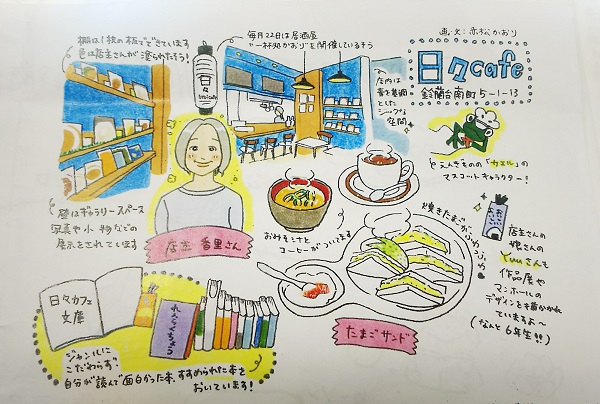 画・文：赤松かおり
日々cafe
鈴蘭台南町5-1-13
棚は1枚の板でできています
色は店主さんが塗られたそう！
毎月22日は居酒屋
"一杯処かおり"を開催しているそう
日々
店内は
青を基調
とした
シックな
空間
えんぎものの「カエル」の
マスコットキャラクター！
壁はギャラリースペース
写真や小物などの
展示をされています
店主 香里さん
おみそしると
コーヒーがついてます
焼きたまごがふわっふわ
たまごサンド
店主さんの
娘さんの
Yuuさんも
作品展や
マンホールの
デザインを描かれ
ていますよ〜
(なんと6年生!!)
日々カフェ
文庫
れんらくちょう
ジャンルに
こだわらず、
自分が読んで面白かった本、すすめられた本を
おいています！